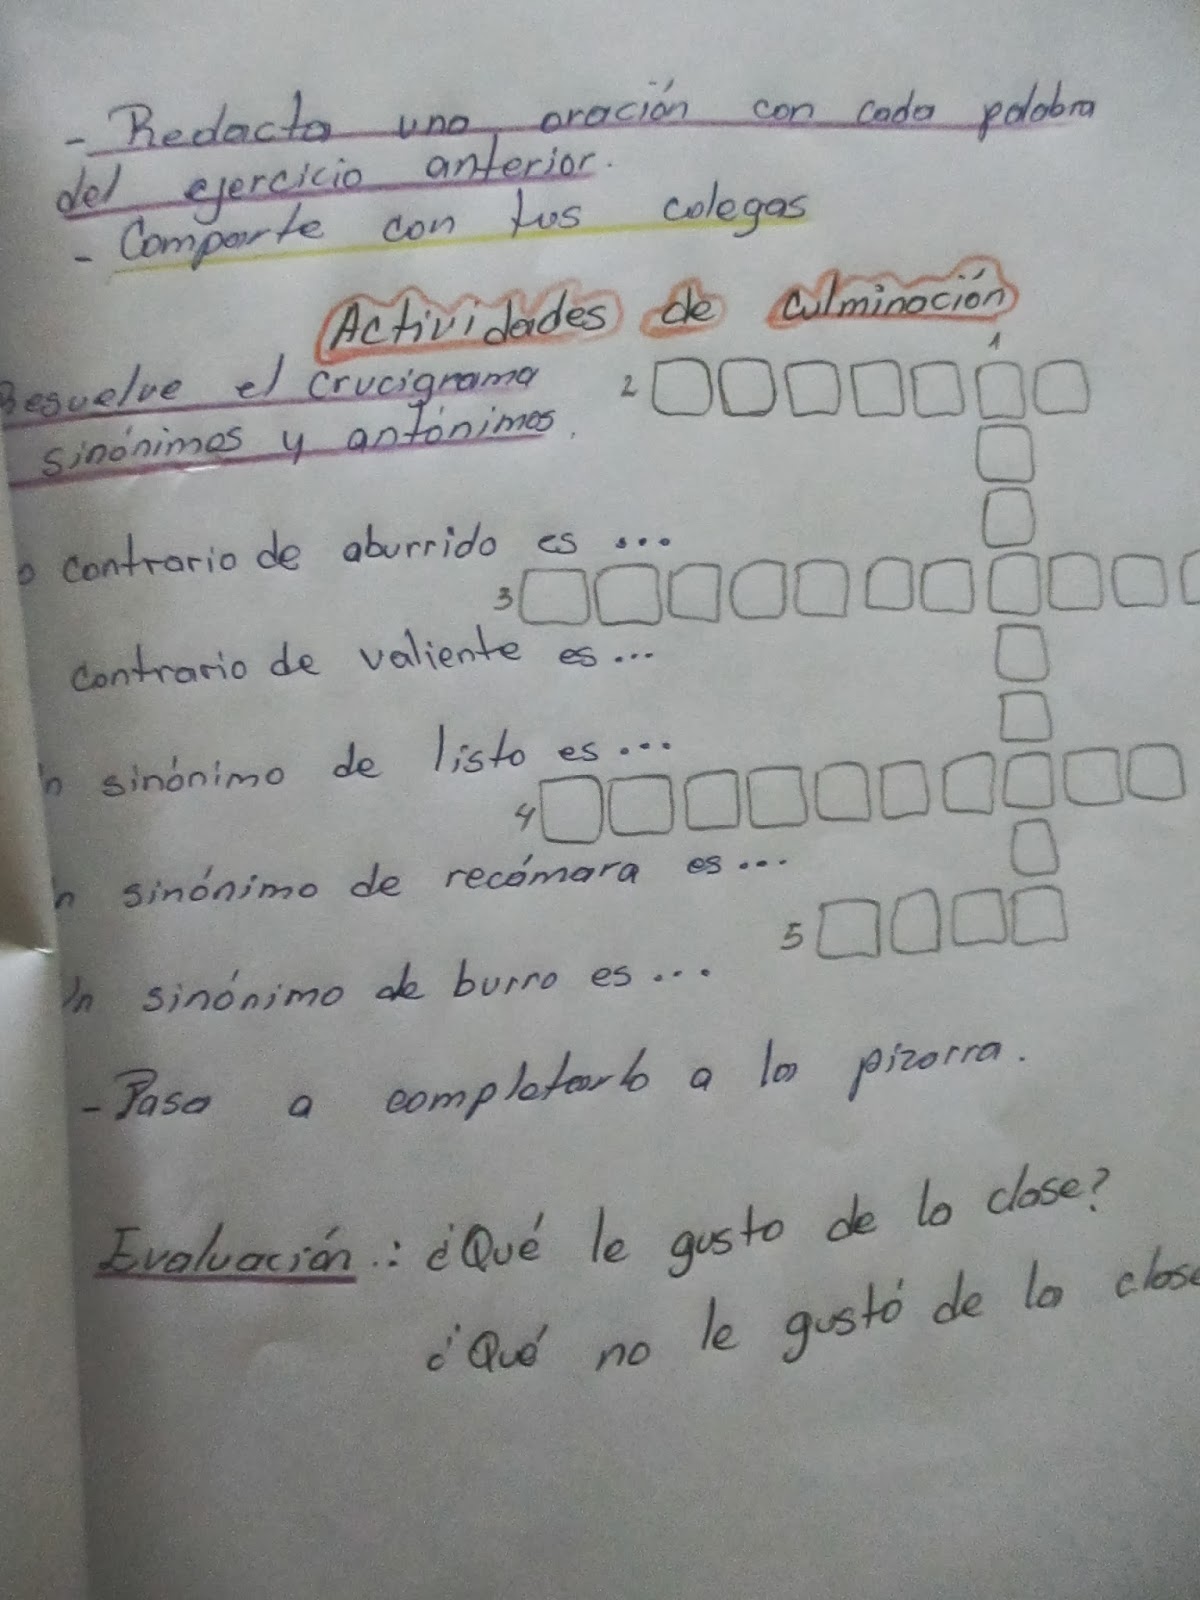 - Redacta una oración con cada palabra
del ejercicio anterior.
- Comparte con tus colegas
Actividades de culminación
Resuelve el crucigrama
sinónimos y antónimos.
1
2
o contrario de aburrido es ...
3
contrario de valiente es ...
n sinónimo de listo es ...
4
n sinónimo de recámara es ...
5
Un sinónimo de burro es ...
- Pasa a completarlo a la pizarra.
Evaluación : ¿Qué le gusto de la clase?
¿Qué no le gustó de la clase